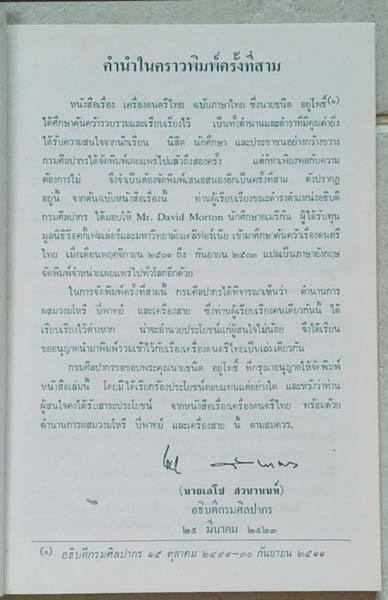 คำนำในคราวพิมพ์ครั้งที่สาม
หนังสือเรื่อง เครื่องดนตรีไทย ฉบับภาษาไทย ซึ่งนายธนิต อยู่โพธิ์(๑)
ได้ศึกษาค้นคว้ารวบรวมและเรียบเรียงไว้ เป็นทั้งตำนานและตำราที่มีคุณค่ายิ่ง
ได้รับความสนใจจากนักเรียน นิสิต นักศึกษา และประชาชนอย่างกว้างขวาง
กรมศิลปากรได้จัดพิมพ์เผยแพร่ไปแล้วถึงสองครั้ง แต่ก็หาเพียงพอกับความ
ต้องการไม่ จึงจำเป็นต้องจัดพิมพ์เสนอสนองอีกเป็นครั้งที่สาม ดังปรากฏ
อยู่นี้ จากต้นฉบับหนังสือเรื่องนี้ ท่านผู้เรียบเรียงขณะดำรงตำแหน่งอธิบดี
กรมศิลปากร ได้มอบให้ Mr. David Morton นักศึกษาอเมริกัน ผู้ได้รับทุน
มูลนิธิร็อคกี้เฟลเลอร์และมหาวิทยาลัยแคลิฟอร์เนีย เข้ามาศึกษาค้นคว้าเรื่องดนตรี
ไทย เมื่อเดือนพฤศจิกายน ๒๕๐๑ ถึง กันยายน ๒๕๐๓ แปลเป็นภาษาอังกฤษ
จัดพิมพ์จำหน่ายเผยแพร่ไปทั่วโลกอีกด้วย
ในการจัดพิมพ์ครั้งที่สามนี้ กรมศิลปากรได้พิจารณาเห็นว่า ตำนานการ
ผสมวงมโหรี ปี่พาทย์ และเครื่องสาย ซึ่งท่านผู้เรียบเรียงคนเดียวกันนี้ ได้
เรียบเรียงไว้ต่างหาก น่าจะอำนวยประโยชน์แก่ผู้สนใจไม่น้อย จึงได้เรียน
ขออนุญาตนำมาพิมพ์รวมเข้าไว้กับเรื่องเครื่องดนตรีไทยเป็นเล่มเดียวกัน
กรมศิลปากรขอขอบพระคุณนายธนิต อยู่โพธิ์ ที่กรุณาอนุญาตให้จัดพิมพ์
หนังสือเล่มนี้ โดยมิได้เรียกร้องประโยชน์ตอบแทนแต่อย่างใด และหวังว่าท่าน
ผู้สนใจคงได้รับสาระประโยชน์ จากหนังสือเรื่องเครื่องดนตรีไทย พร้อมด้วย
ตำนานการผสมวงมโหรี ปี่พาทย์ และเครื่องสาย นี้ ตามสมควร.
(นายเดโช สวนานนท์)
อธิบดีกรมศิลปากร
๒๕ มีนาคม ๒๕๒๓
(๑) อธิบดีกรมศิลปากร ๑๕ ตุลาคม ๒๔๙๙-๓๐ กันยายน ๒๕๑๑